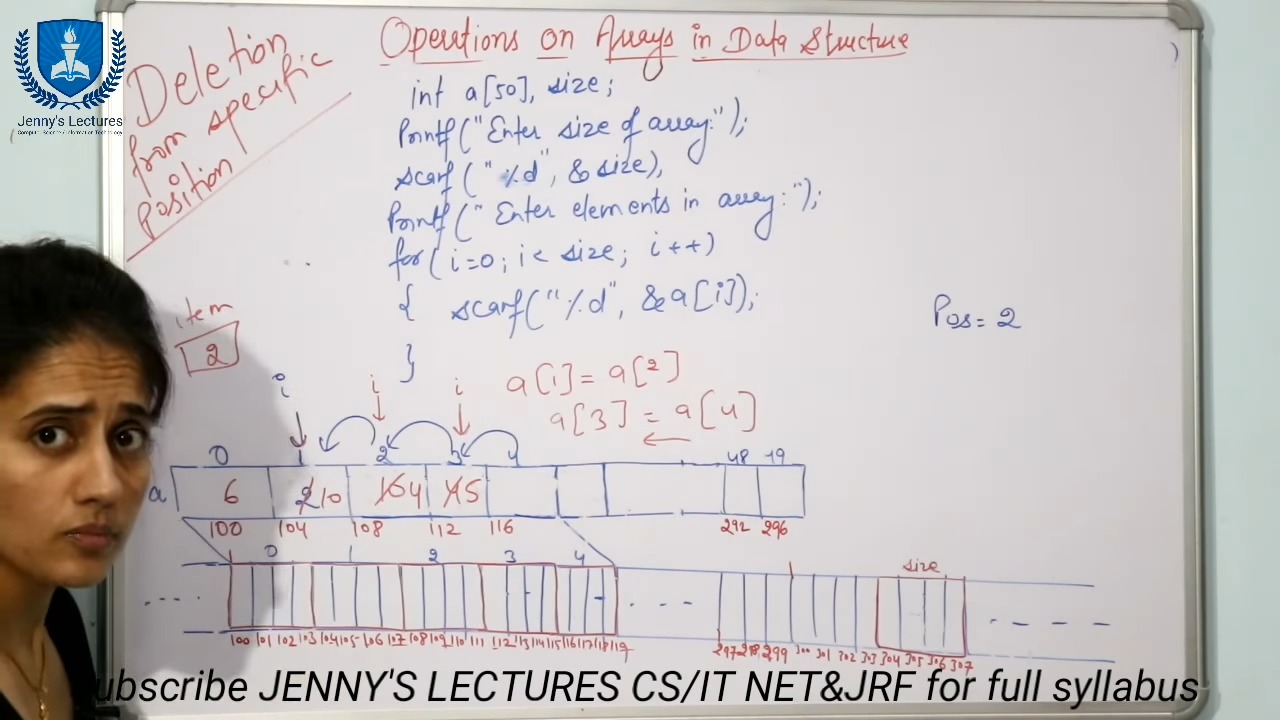 Jenny's Lectures
Computer Science/Information Technology
Deletion
from specific
position
Operations on Arrays in Data Structure
int a[50], size;
Printf("Enter size of array:");
scanf("%d", &size),
Printf("Enter elements in array:");
for(i=0; i< size; i++)
{ scanf("%d", &a[i]);
}
Pos= 2
item
2
a[1] = a[2]
a[3] = a[4]
i i i
0 1 2 3 4 48 49
a 6 2 10 10 4 4 5
100 104 108 112 116 292 296
0 1 2 3 4 size
100 101 102 103 104 105 106 107 108 109 110 111 112 113 114 115 116 117 118 119 297 298 299 300 301 302 303 304 305 306 307
ubscribe JENNY'S LECTURES CS/IT NET&JRF for full syllabus